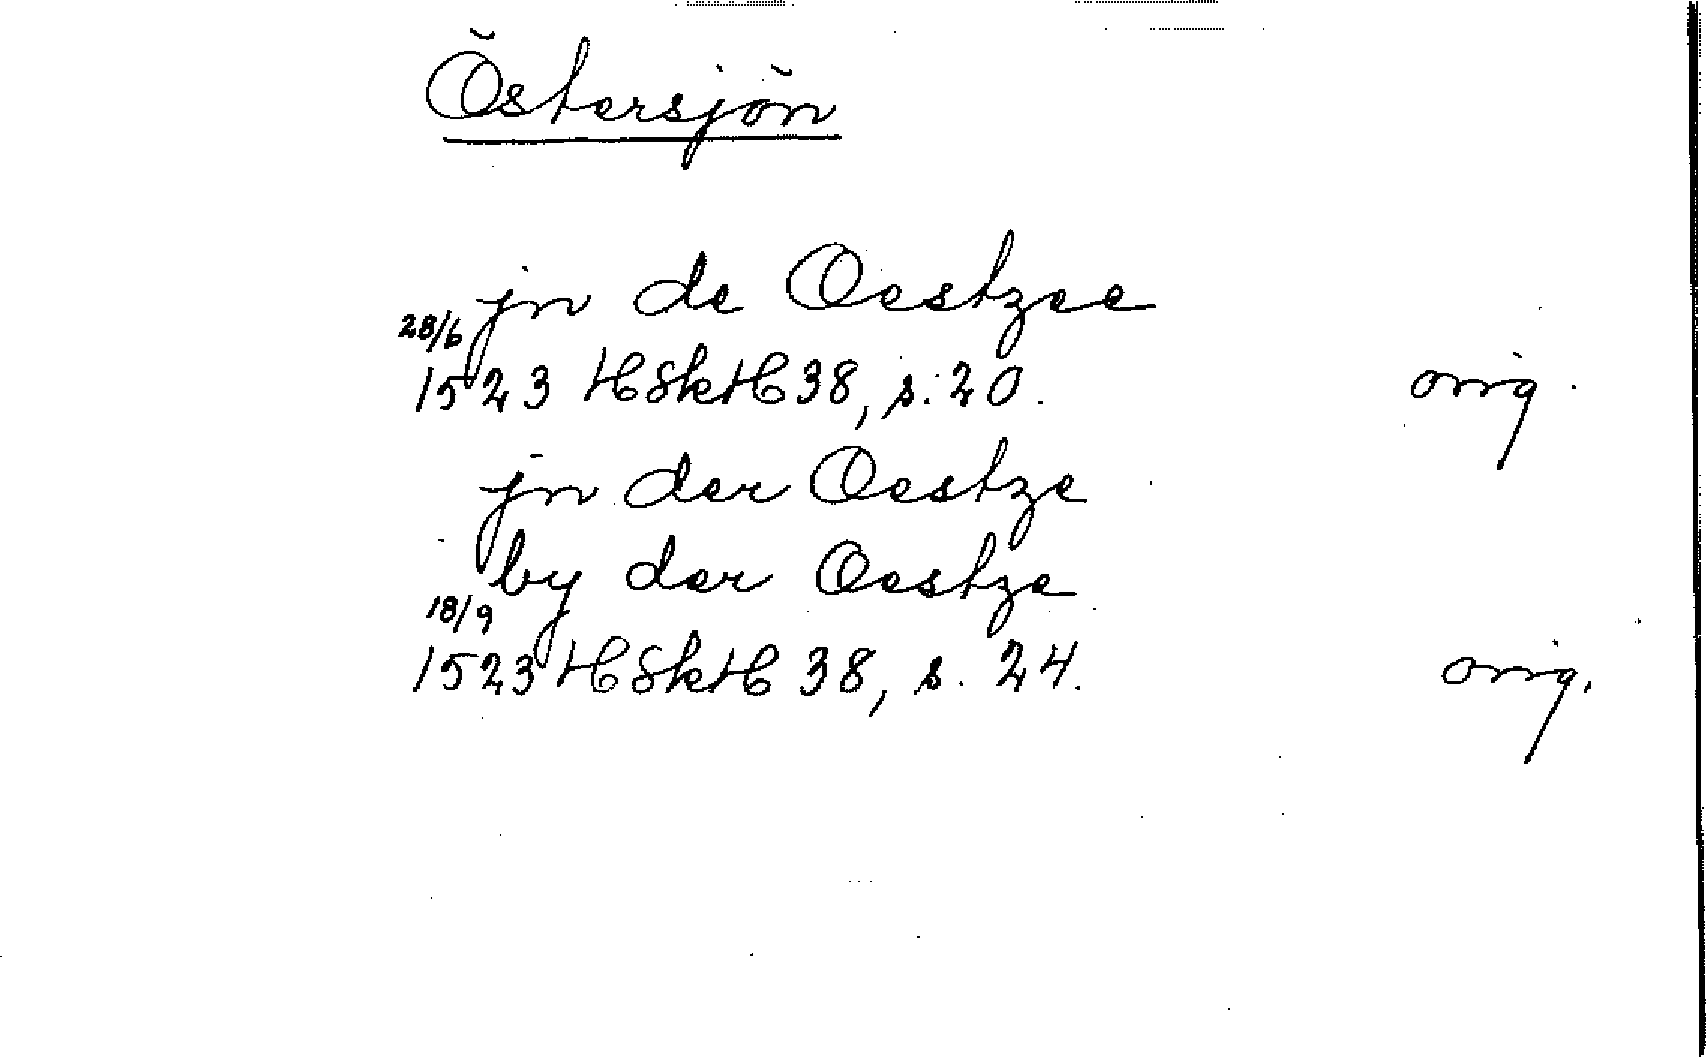 Östersjön
jn de Oestzee
28/6
1523 HSkH 38, s. 20. orig.
jn der Oestze
by der Oestze
18/9
1523 HSkH 38, s. 24. orig.